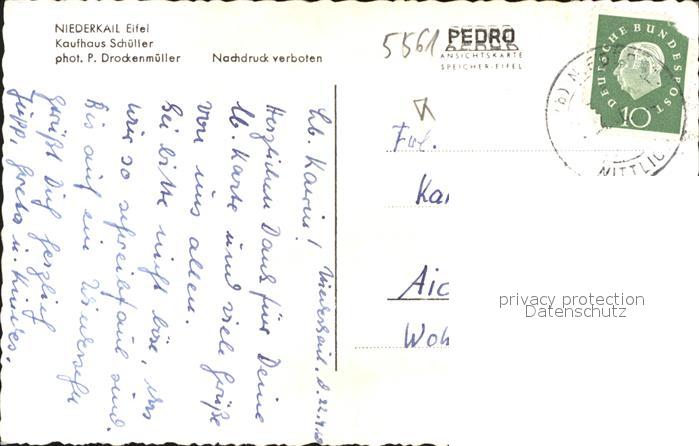 NIEDERKAIL Eifel
Kaufhaus Schüller
phot. P. Drockenmüller Nachdruck verboten
5561
PEDRO
ANSICHTSKARTE
SPEICHER-EIFEL
DEUTSCHE BUNDESPOST
10
WITTLIC
Frl.
Kar
Aic
Woh
privacy protection
Datenschutz
Niederkail, d. 22.4.60
Lb. Karin!
Herzlichen Dank für Deine
lb. Karte und viele Grüße
von uns allen.
Sei bitte nicht böse, das
wir so schreibfaul sind.
Bis auf ein Wiedersehn
grüßt Dich herzlich
Jupp, Greta u. Kinder.